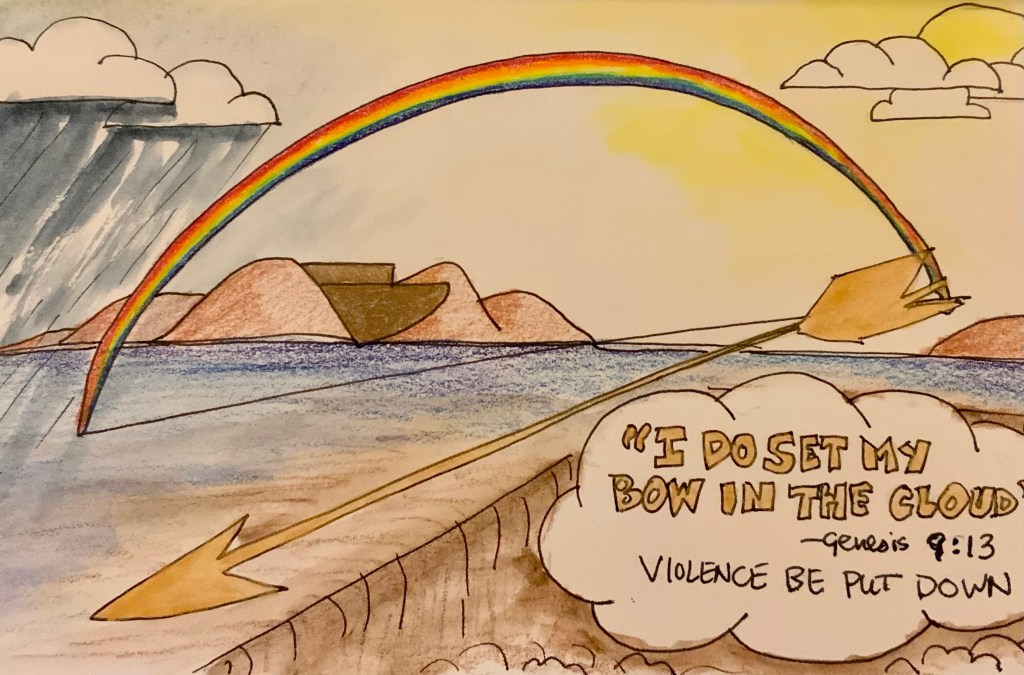 "I DO SET MY
BOW IN THE CLOUD"
-Genesis 9:13
VIOLENCE BE PUT DOWN